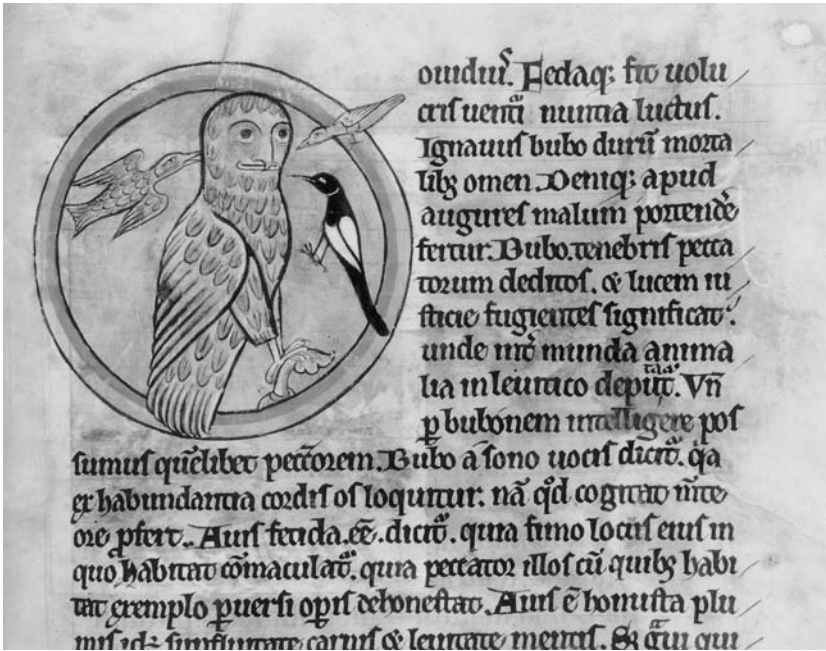 ouidiuſ. Fedaq; fit uolu
criſ uentͥ nuntia luctuſ.
Ignauuſ bubo dirū morta
libꝫ omen. Deniq; apud
augureſ malum portendẽ
fertur. Bubo. tenebriſ pecca
torum deditoſ. ⁊ lucem iu
ſticie fugienteſ ſignificat.
unde int̾ munda anima
lia in leuitico deput̃. Vñ
ꝑ bubonem intelligere poſ
ſumuſ quēlibet peccͣtorem. Bubo a ſono uociſ dicit᷑. qͥa
ex habundantia cordiſ oſ loquitur. nā qͦd cogitat m̃te
ore ꝓfert. Auiſ fetida. eẽ. dicit᷑. quia fimo locuſ eiuſ in
quo habitat cōmaculat᷑. quia peccator illoſ cū quibꝫ habi
tat exemplo ꝑuerſi opiſ dehoneſtat. Auiſ ē honuſta plu
miſ ſuꝑfluitate carniſ ⁊ leuitate mentiſ. Sꝫ qui